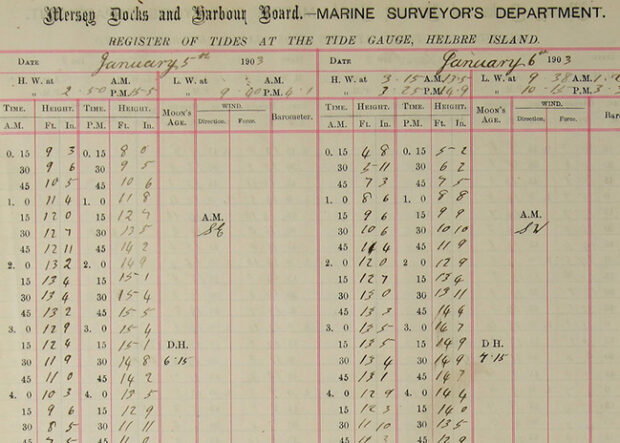 Mersey Docks and Harbour Board.—MARINE SURVEYOR'S DEPARTMENT.
REGISTER OF TIDES AT THE TIDE GAUGE, HELBRE ISLAND.
DATE January 5th 1903 DATE January 6th 1903
H. W. at A.M. L. W. at A.M. H. W. at 3.15 A.M. 13.5 L. W. at 9 38 A.M.
" 2.50 P.M. 15.5 " 9.40 P.M. 4.1 " 3 25 P.M. 14.9 " 10 15 P.M.
TIME. HEIGHT. TIME. HEIGHT. MOON'S AGE. WIND. Barometer. TIME. HEIGHT. TIME. HEIGHT. MOON'S AGE. WIND.
A.M. Ft. In. P.M. Ft. In. Direction. Force. A.M. Ft. In. P.M. Ft. In. Direction. Force.
0. 15 9 3 0. 15 8 0 0. 15 4 8 0. 15 5 2
30 9 6 30 9 5 30 5 11 30 6 2
45 10 5 45 10 6 45 7 3 45 7 5
1. 0 11 4 1. 0 11 8 1. 0 8 6 1. 0 8 8
15 12 0 15 12 7 A.M. 15 9 6 15 9 9 A.M.
30 12 7 30 13 5 SE 30 10 6 30 10 10 SW
45 12 11 45 14 2 45 11 4 45 11 9
2. 0 13 2 2. 0 14 9 2. 0 12 0 2 0 12 9
15 13 4 15 15 1 15 12 7 15 13 4
30 13 4 30 15 4 30 13 0 30 13 11
45 13 2 45 15 5 45 13 3 45 14 4
3. 0 12 9 3. 0 15 4 3. 0 13 5 3. 0 14 7
15 12 4 15 15 1 D.H. 15 13 5 15 14 9 D H.
30 11 9 30 14 8 6.15 30 13 4 30 14 9 7.15
45 11 0 45 14 2 45 13 1 45 14 7
4. 0 10 3 4. 0 13 5 4. 0 12 9 4. 0 14 4
15 9 6 15 12 9 15 12 3 15 14 0
30 8 5 30 11 11 30 11 10 30 13 5
45 7 5 45 45 11 3 45 12 9